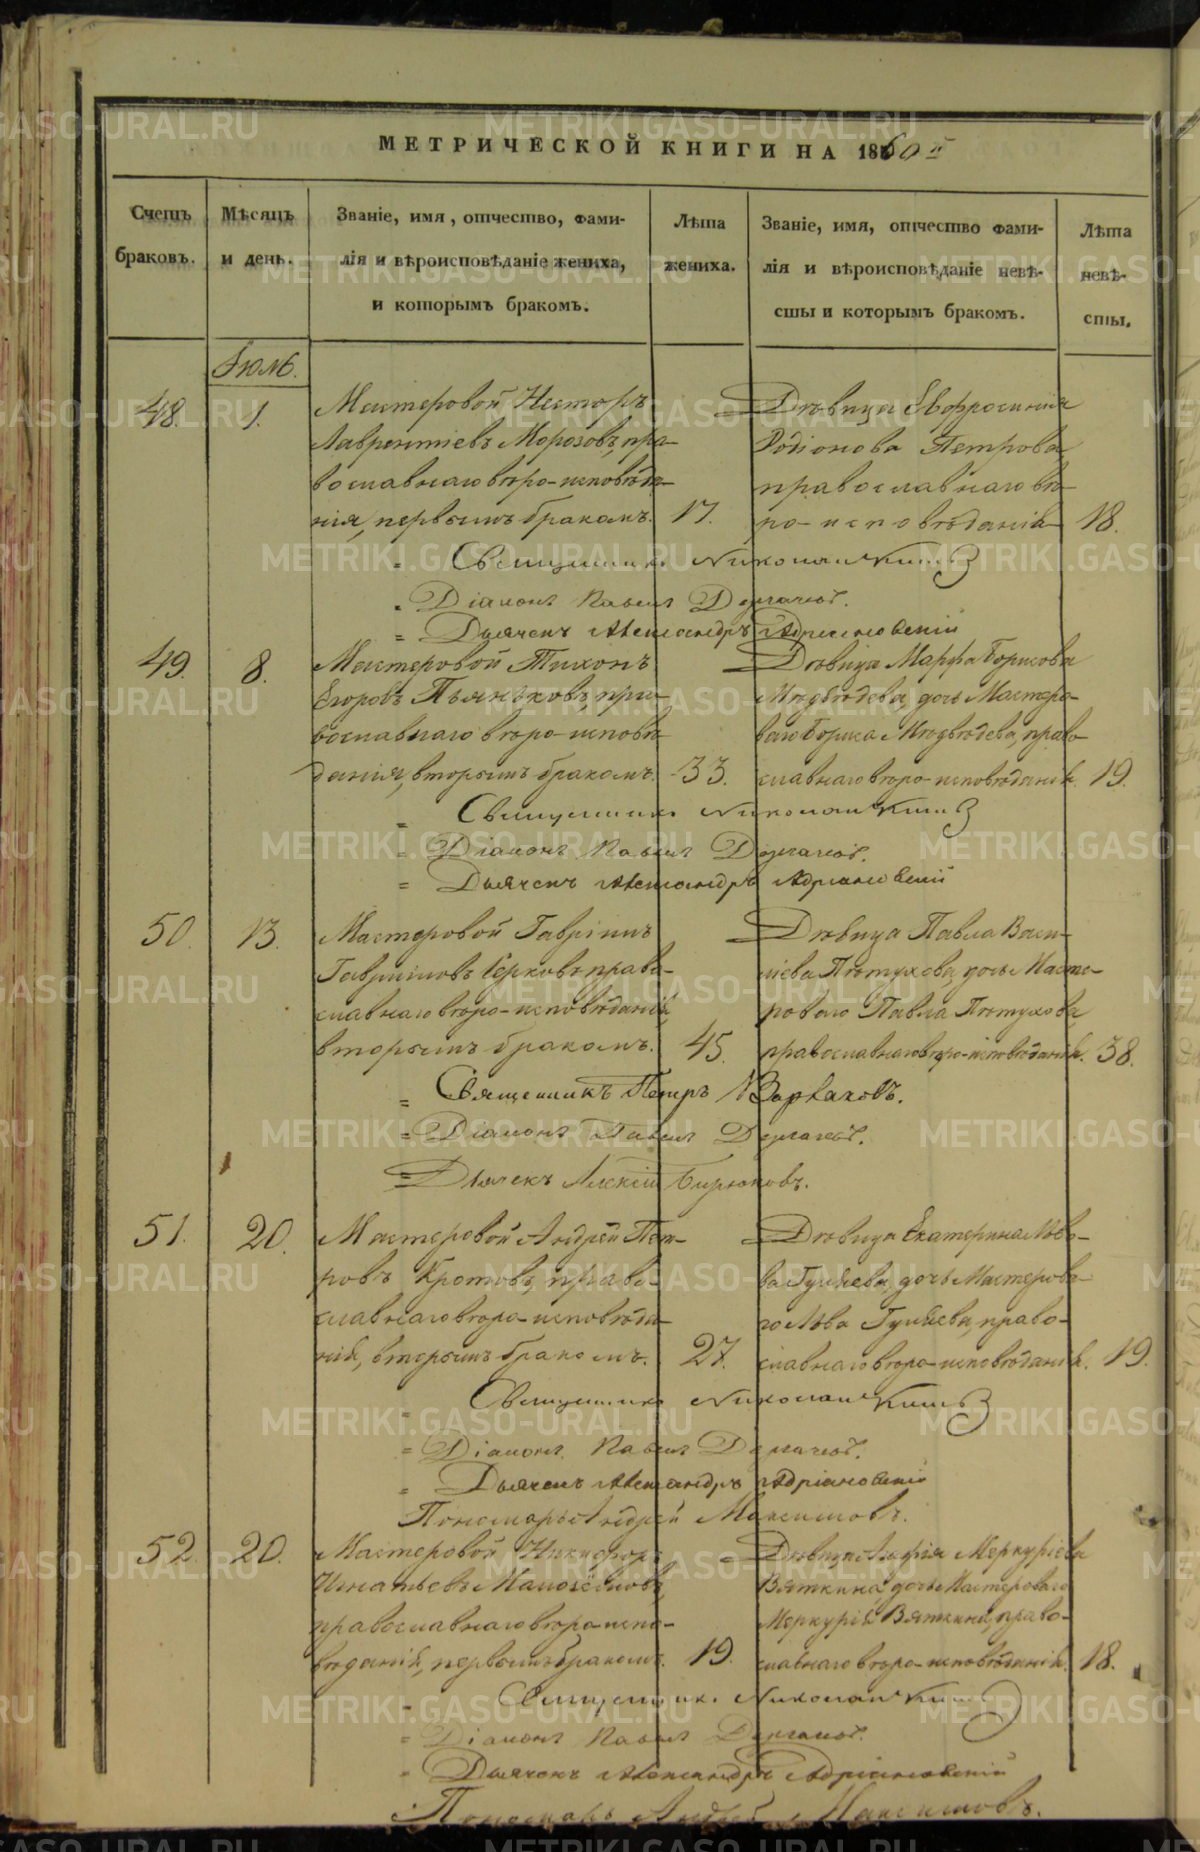 МЕТРИЧЕСКОЙ КНИГИ НА 1860й
Счетъ браковъ.
Мѣсяцъ и день.
Званіе, имя, отчество, фами-
лія и вѣроисповѣданіе жениха,
и которымъ бракомъ.
Лѣта жениха.
Званіе, имя, отчество фами-
лія и вѣроисповѣданіе невѣ-
сты и которымъ бракомъ.
Лѣта невѣ-
сты.
48. 1.
Мастеровой Несторъ
Лаврентіевъ Морозовъ, пра-
вославнаго вѣро-исповѣда-
нія, первымъ бракомъ. 17.
Дѣвица Евфросинія
Родіонова Петрова,
православнаго вѣ-
ро-исповѣданія 18.
Священникъ Николай
Діаконъ Павелъ Дергачевъ.
Дьячекъ Александръ Адріановскій
49. 8.
Мастеровой Тихонъ
Егоровъ Пьянковъ, пра-
вославнаго вѣро-исповѣ-
данія, вторымъ бракомъ. 33.
Дѣвица Марфа Борисова
Медвѣдева, дочь Мастеро-
ваго Бориса Медвѣдева, право-
славнаго вѣро-исповѣданія. 19.
Священникъ Николай
Діаконъ Павелъ Дергачевъ.
Дьячекъ Александръ Адріановскій
50. 13.
Мастеровой Гавріилъ
Гавриловъ право-
славнаго вѣро-исповѣданія,
вторымъ бракомъ. 45.
Дѣвица Павла Васи-
лiева Пѣтухова, дочь Масте-
роваго Павла Пѣтухова,
православнаго вѣро-исповѣданія. 38.
Священникъ Петръ
Діаконъ Павелъ Дергачевъ.
Дьячекъ Алексій Бирюковъ.
51. 20.
Мастеровой Андрей Пет-
ровъ Кротовъ, право-
славнаго вѣро-исповѣда-
нія, вторымъ бракомъ. 27.
Дѣвица Екатерина Льво-
ва Гуляева, дочь Мастерова-
го Льва Гуляева, право-
славнаго вѣро-исповѣданія. 19.
Священникъ Николай
Діаконъ Павелъ Дергачевъ.
Дьячекъ Александръ Адріановскій
Пономарь Андрей Максимовъ.
52 20.
Мастеровой Никифоръ
Игнатьевъ
православнаго вѣро-испо-
вѣданія, первымъ бракомъ. 19.
Дѣвица Меркуріева
Вяткина, дочь Мастероваго
Меркурія Вяткина, право-
славнаго вѣро-исповѣданія. 18.
Священникъ Николай
Діаконъ Павелъ Дергачевъ.
Дьячекъ Александръ Адріановскій
Пономарь Андрей Максимовъ.
METRIKI.GASO-URAL.RU